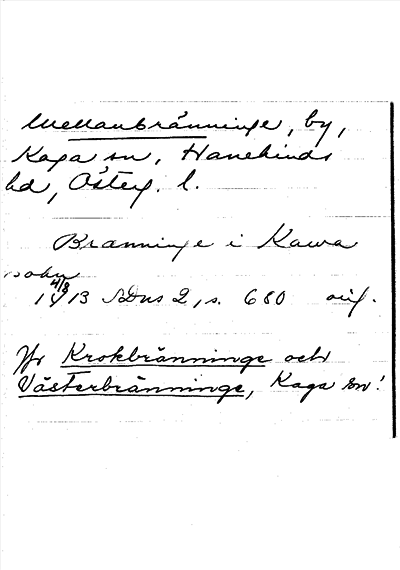 Mellanbränninge, by,
Kaga sn, Hanekinds
hd, Österg. l.
Brænninge i Kawa
sokn
4/8
1413 SDns 2, s. 680 orig.
Jfr Krokbränninge och
Västerbränninge, Kaga sn!